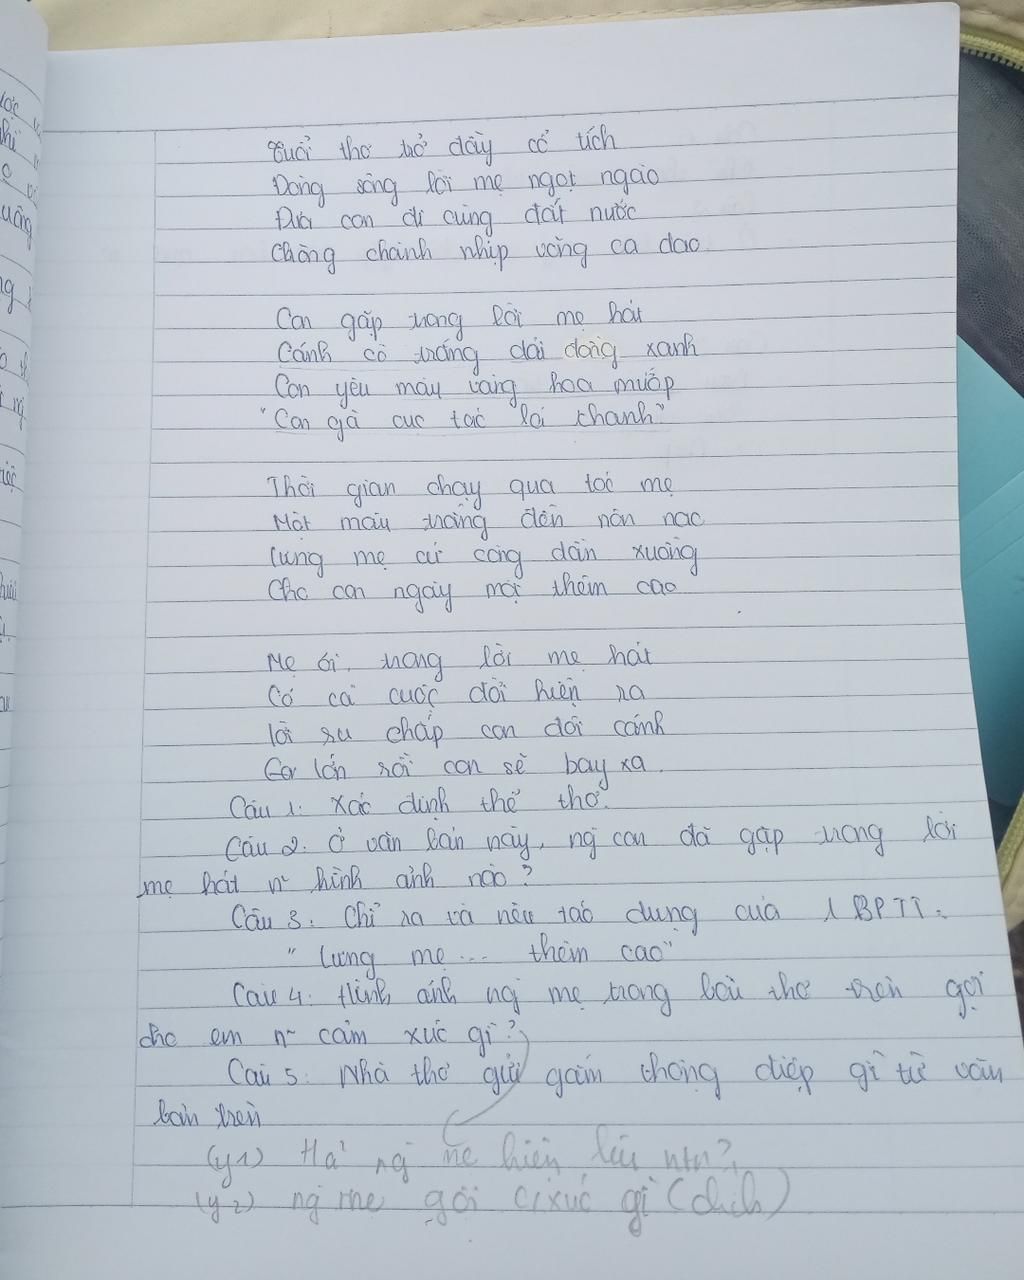 Tuổi thơ trở đầy cổ tích
Dòng sông lời mẹ ngọt ngào
Đưa con đi cùng đất nước
Chòng chành nhịp võng ca dao
Con gặp trong lời mẹ hát
Cánh cò trắng dải đồng xanh
Con yêu màu vàng hoa mướp
"Con gà cục tác lá chanh"
Thời gian chạy qua tóc mẹ
Một màu trắng đến nôn nao
Lưng mẹ cứ còng dần xuống
Cho con ngày một thêm cao
Mẹ ơi, trong lời mẹ hát
Có cả cuộc đời hiện ra
Lời ru chắp con đôi cánh
lớn rồi con sẽ bay xa.
Câu 1: Xác định thể thơ.
Câu 2: Ở văn bản này, ng con đã gặp trong lời
mẹ hát n~ hình ảnh nào?
Câu 3: Chỉ ra và nêu tác dụng của 1 BPTT:
"Lưng mẹ... thêm cao"
Câu 4: Hình ảnh ng mẹ trong bài thơ trên gợi
cho em n~ cảm xúc gì?
Câu 5: Nhà thơ gửi gắm thông điệp gì từ văn
bản trên
(ý1) Hả ng mẹ hiện lên ntn?
(ý2) ng mẹ gợi c/xúc gì